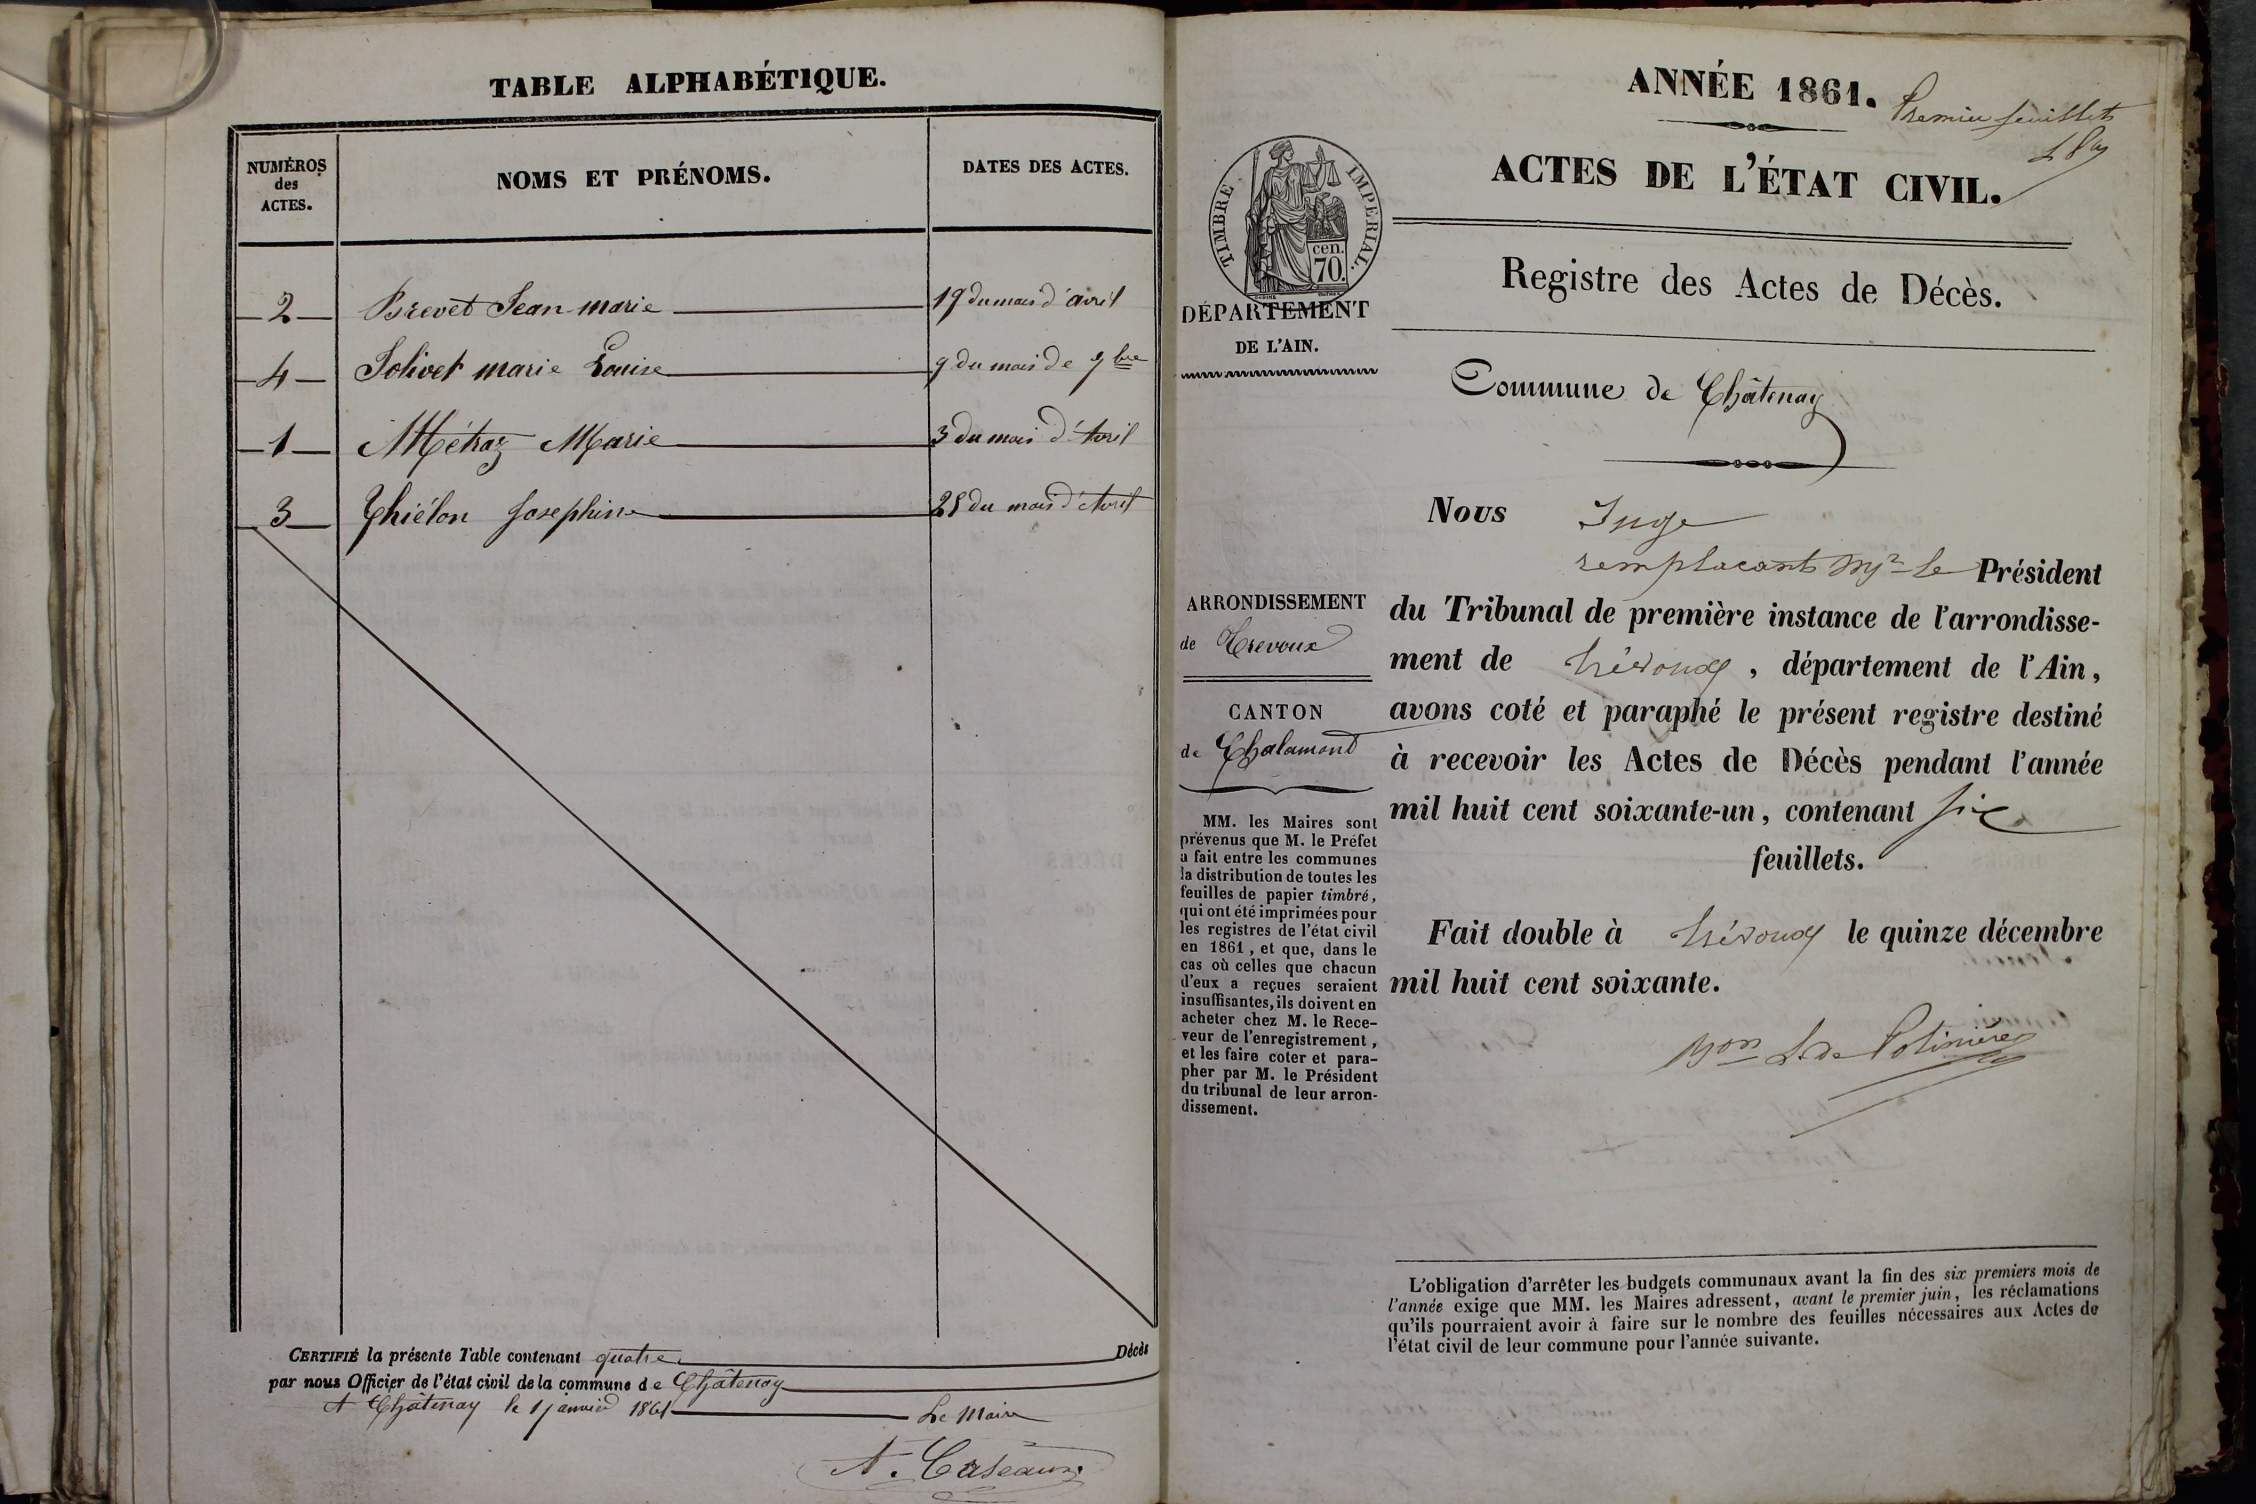 TABLE ALPHABÉTIQUE.
NUMÉROS
des
ACTES.
NOMS ET PRÉNOMS.
DATES DES ACTES.
2 Brevet Jean marie 19 du mois d'avril
4 Jolivet marie Louise 9 du mois de 9bre
1 Métraz Marie 3 du mois d'Avril
3 Thiélon Josephine 25 du mois d'Avril
CERTIFIÉ la présente Table contenant quatre Décès
par nous Officier de l'état civil de la commune de Châtenay
A Châtenay le 1 janvier 1861 Le Maire
ANNÉE 1861.
Premier feuillet
ACTES DE L'ÉTAT CIVIL.
TIMBRE IMPERIAL.
cen.
70.
DÉPARTEMENT
DE L'AIN.
Registre des Actes de Décès.
Commune de Châtenay
ARRONDISSEMENT
de Trevoux
CANTON
de Chalamont
MM. les Maires sont
prévenus que M. le Préfet
a fait entre les communes
la distribution de toutes les
feuilles de papier timbré,
qui ont été imprimées pour
les registres de l'état civil
en 1861, et que, dans le
cas où celles que chacun
d'eux a reçues seraient
insuffisantes, ils doivent en
acheter chez M. le Rece-
veur de l'enregistrement,
et les faire coter et para-
pher par M. le Président
du tribunal de leur arron-
dissement.
Nous Juge
remplacant Mr le Président
du Tribunal de première instance de l'arrondisse-
ment de trévoux, département de l'Ain,
avons coté et paraphé le présent registre destiné
à recevoir les Actes de Décès pendant l'année
mil huit cent soixante-un, contenant six
feuillets.
Fait double à trévoux le quinze décembre
mil huit cent soixante.
Bon L. de Polinière
L'obligation d'arrêter les budgets communaux avant la fin des six premiers mois de
l'année exige que MM. les Maires adressent, avant le premier juin, les réclamations
qu'ils pourraient avoir à faire sur le nombre des feuilles nécessaires aux Actes de
l'état civil de leur commune pour l'année suivante.